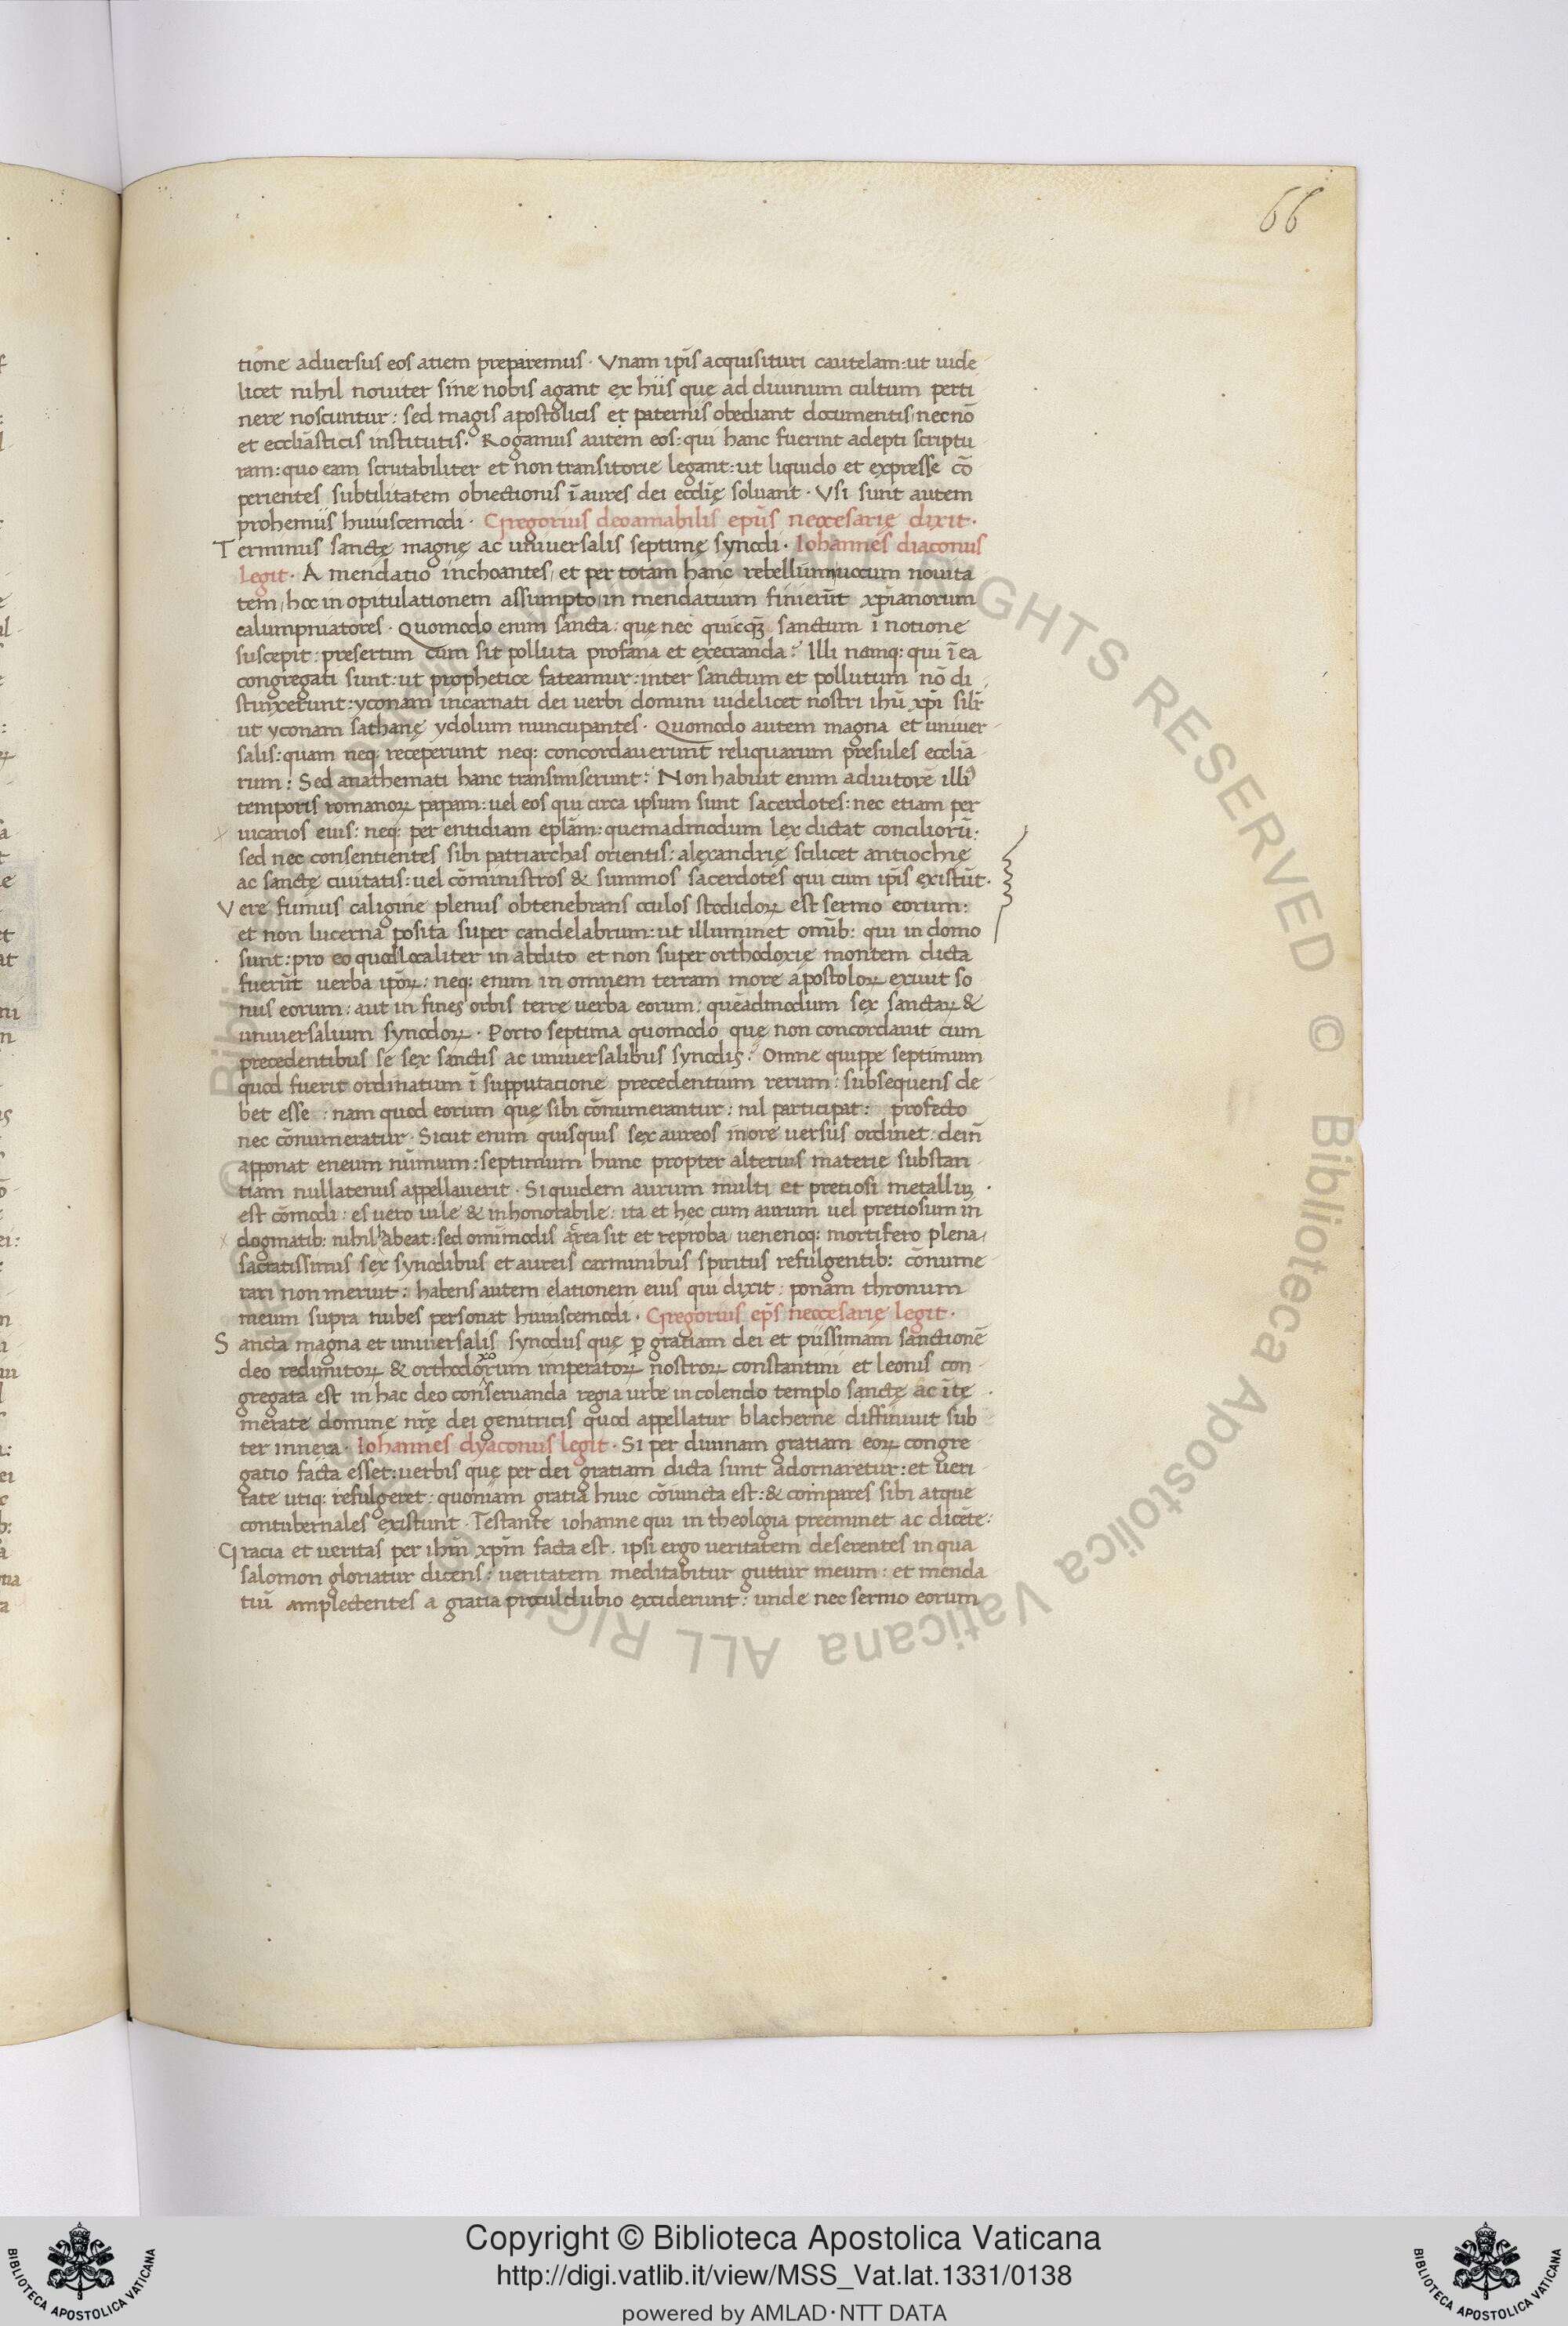 66
tione aduersus eos atiem preparemus · Vnam ip̄s acquisituri cautelam : ut uide
licet nihil nouiter sine nobis agant ex hiis quę ad diuinum cultum perti
nere noscuntur : sed magis apostolicis et paternis obediant documentis nec nō
et eccliāsticis institutis · Rogamus autem eos : qui hanc fuerint adepti scriptu
ram : quo eam scrutabiliter et non transitorie legant : ut liquido et expresse cō
perientes subtilitatem obiectionis ī aures dei ecclīę soluant · Vsi sunt autem
prohemiis huiuscemodi · Gregorius deo amabilis ep̄us neocesarię dixit ·
Terminus sanctę magnę ac uniuersalis septimę synodi · Iohannes diaconus
legit · A mendatio inchoantes / et per totam hanc rebellium uocum nouita
tem / hoc in opitulationem assumpto / in mendatium finierūt xp̄ianorum
calumpniatores · Quomodo enim sancta : quę nec quicq̄ꝫ sanctum ī notione
suscepit : presertim cum sit polluta profana et execranda ? Illi namq; qui ī ea
congregati sunt : ut prophetice fateamur : inter sanctum et pollutum nō di
stinxerunt : yconam incarnati dei uerbi domini uidelicet nostri ihū xp̄i silr̄
ut yconam sathanę ydolum nuncupantes · Quomodo autem magna et uniuer
salis : quam neq; receperunt neq; concordauerunt reliquarum presules ecclīa
rum : Sed anathemati hanc transmiserunt : Non habuit enim adiutorē illiꝰ
temporis romanoꝝ papam : uel eos qui circa ipsum sunt sacerdotes : nec etiam per
uicarios eius : neq; per entidiam eplām : quemadmodum lex dictat conciliorū :
sed nec consentientes sibi patriarchas orientis : alexandrię scilicet antiochię
ac sanctę ciuitatis : uel cōministros & summos sacerdotes qui cum ip̄is existūt ·
Vere fumus caligine plenus obtenebrans oculos stodidoꝝ est sermo eorum :
et non lucerna posita super candelabrum : ut illuminet omīb; qui in domo
sunt : pro eo quod localiter in abdito et non super orthodoxię montem dicta
fuerūt uerba ipōꝝ : neq; enim in omnem terram more apostoloꝝ exiuit so
nus eorum : aut in fines orbis terrę uerba eorum : quēadmodum sex sanctaꝝ &
uniuersalium synodoꝝ · Porro septima quomodo quę non concordauit cum
precedentibus se sex sanctis ac uniuersalibus synodis ? Omne quippe septimum
quod fuerit ordinatum ī supputacione precedentium rerum : subsequens de
bet esse : nam quod eorum quę sibi cōnumerantur : nil participat : profecto
nec cōnumeratur · Sicut enim quisquis sex aureos more uersus ordinet : dein̄
apponat eneum nūmum : septimum hunc propter alterius materię substan
tiam nullatenus appellauerit · Siquidem aurum multi et pretiosi metalli
est cōmodi : es uero uile & inhonorabile : ita et hec cum aurum uel pretiosum in
dogmatib; nihil habeat : sed omīmodis ærea sit et reproba uenenoq; mortifero plena /
sacratissimis sex synodibus et aureis carminibus spiritus refulgentib; cōnume
rari non meruit : habens autem elationem eius qui dixit : ponam thronum
meum supra nubes personat huiuscemodi · Gregorius ep̄s neocesarię legit ·
Sancta magna et uniuersalis synodus quę ꝑ gratiam dei et piissimam sanctionē
deo redimitoꝝ & orthodoxorum imperatoꝝ nostroꝝ constantini et leonis con
gregata est in hac deo conseruanda regia urbe in colendo templo sanctę ac īte
merate domine nr̄ę dei genitricis quod appellatur blacherne diffiniuit sub
ter innexa · Iohannes dyaconus legit · Si per diuinam gratiam eoꝝ congre
gatio facta esset : uerbis quę per dei gratiam dicta sunt adornaretur : et ueri
tate utiq; refulgeret : quoniam gratia huic cōiuncta est : & compares sibi atque
contubernales existunt · Testante iohanne qui in theologia preeminet ac dicēte :
Gracia et ueritas per ihm̄ xpm̄ facta est · ipsi ergo ueritatem deserentes in qua
salomon gloriatur dicens : ueritatem meditabitur guttur meum : et menda
tiū amplectentes a gratia proculdubio exciderunt : unde nec sermo eorum
Copyright © Biblioteca Apostolica Vaticana
http://digi.vatlib.it/view/MSS_Vat.lat.1331/0138
powered by AMLAD · NTT DATA